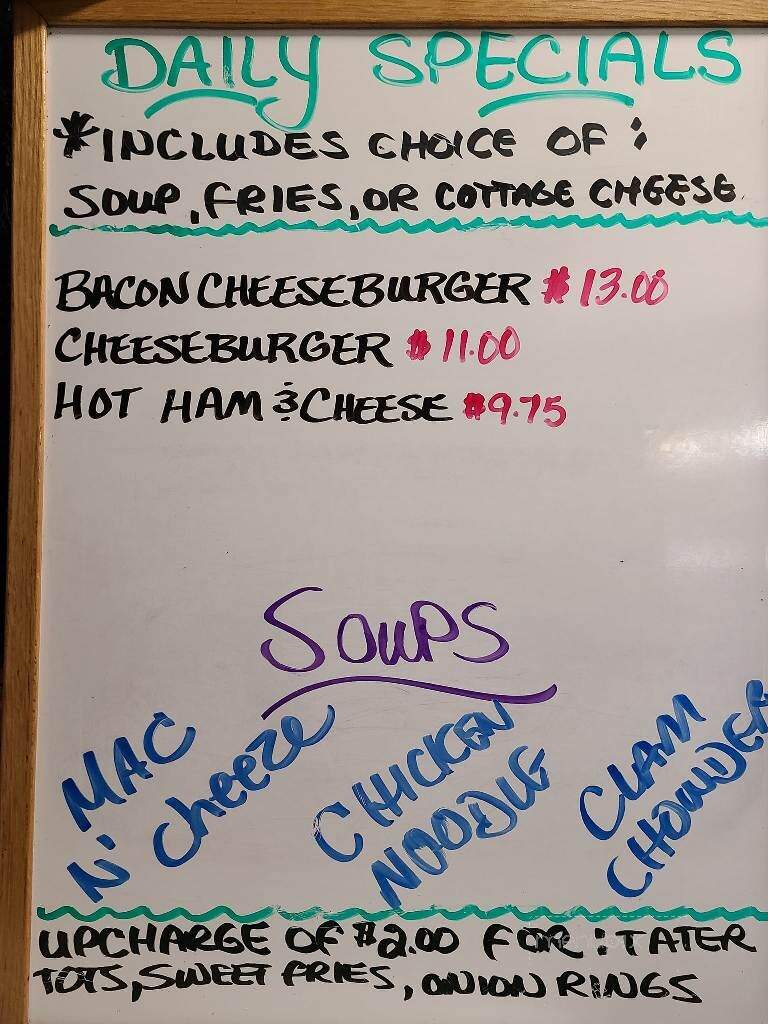 DAILY SPECIALS
*INCLUDES CHOICE OF :
SOUP, FRIES, OR COTTAGE CHEESE
BACON CHEESEBURGER $13.00
CHEESEBURGER $11.00
HOT HAM & CHEESE $9.75
SOUPS
MAC
N' cheeze
CHICKEN
NOODLE
CLAM
CHOWDER
UPCHARGE OF $2.00 FOR : TATER
TOTS, SWEET FRIES, ONION RINGS